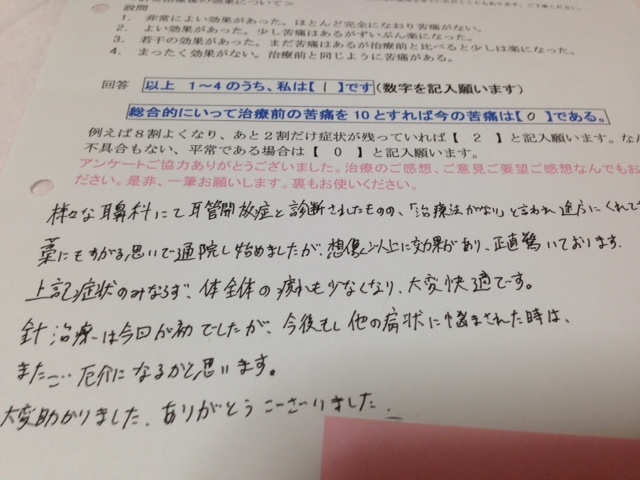 治療後の効果について＞
設問
1. 非常によい効果があった。ほとんど完全になおり苦痛がない。
2. よい効果があった。少し苦痛はあるがずいぶん楽になった。
3. 若干の効果があった。まだ苦痛はあるが治療前と比べると少しは楽になった。
4. まったく効果がない。治療前と同じように苦痛がある。
回答 以上 1～4のうち、私は【 1 】です (数字を記入願います)
総合的にいって治療前の苦痛を10とすれば今の苦痛は【 0 】である。
例えば8割よくなり、あと2割だけ症状が残っていれば【 2 】と記入願います。なん
不具合もない、平常である場合は【 0 】と記入願います。
アンケートご協力ありがとうございました。治療のご感想、ご意見ご要望ご感想なんでもお
ださい。是非、一筆お願いします。裏もお使いください。
様々な耳鼻科にて耳管開放症と診断されたものの、「治療法がない」と言われ途方にくれて
藁にもすがる思いで通院し始めましたが、想像以上に効果があり、正直驚いております。
上記症状のみならず、体全体の疲れも少なくなり、大変快適です。
針治療は今回が初でしたが、今後もし他の病状に悩まされた時は、
またご厄介になるかと思います。
大変助かりました。ありがとうございました。